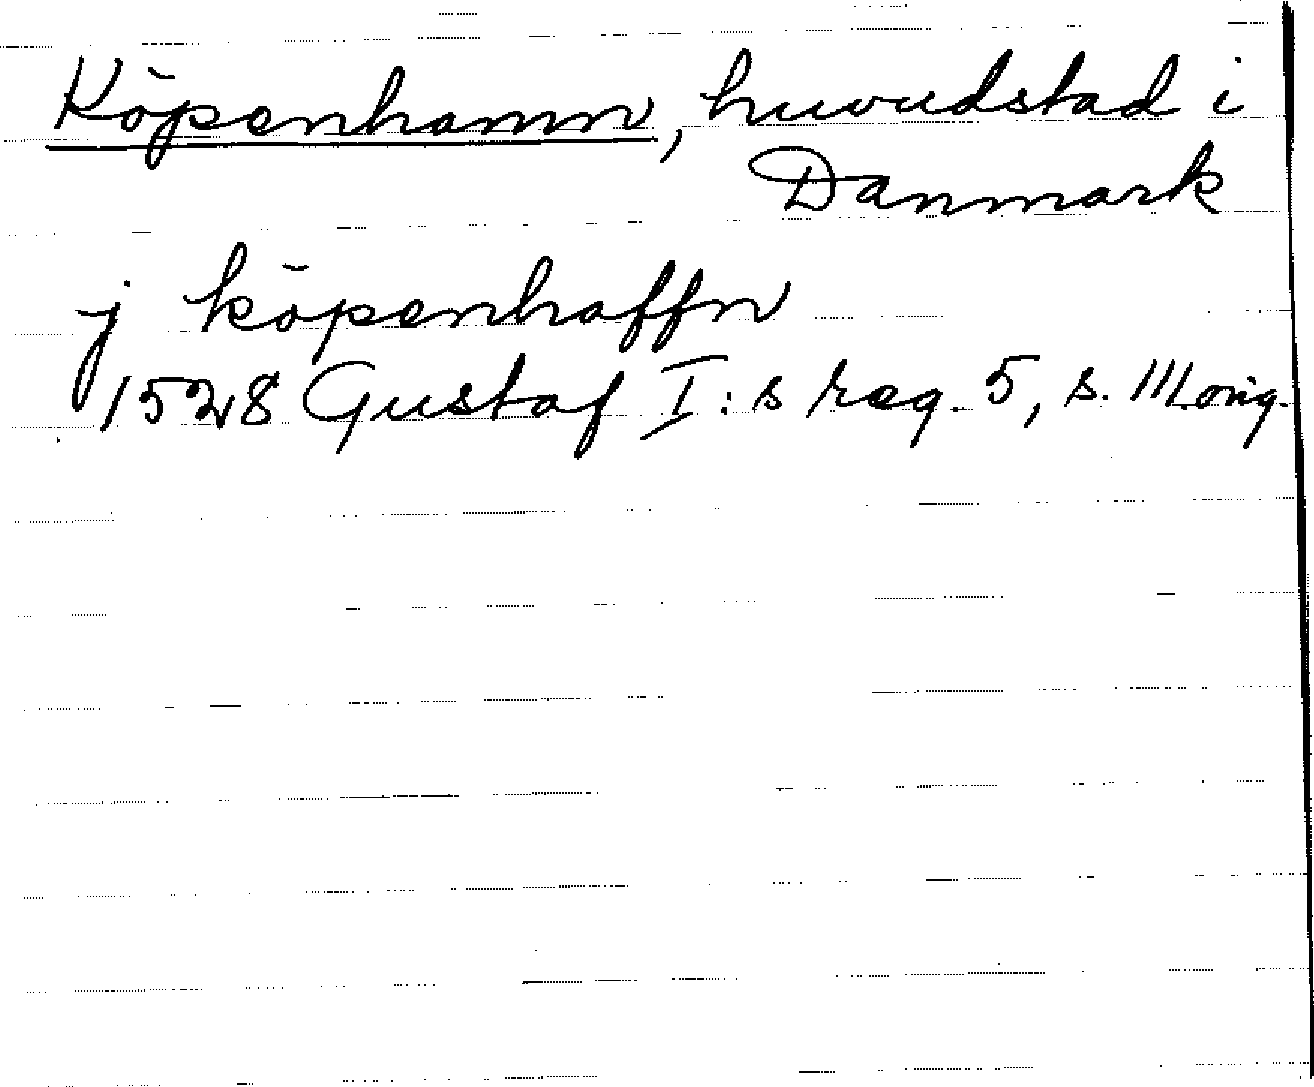 Köpenhamn, huvudstad i
Danmark
j köpenhaffn
1528 Gustaf I:s reg. 5, s. 111. orig.